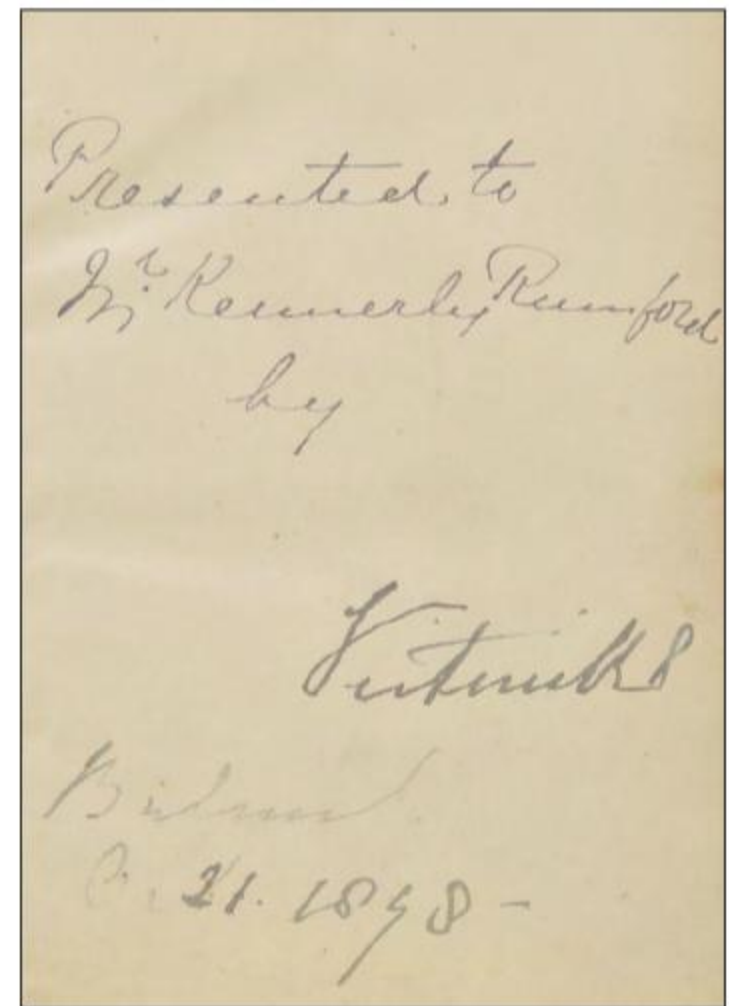 Presented to
Mr. Kennerley Rumford
by
Victoria RI
Balmoral
21. 1898 -